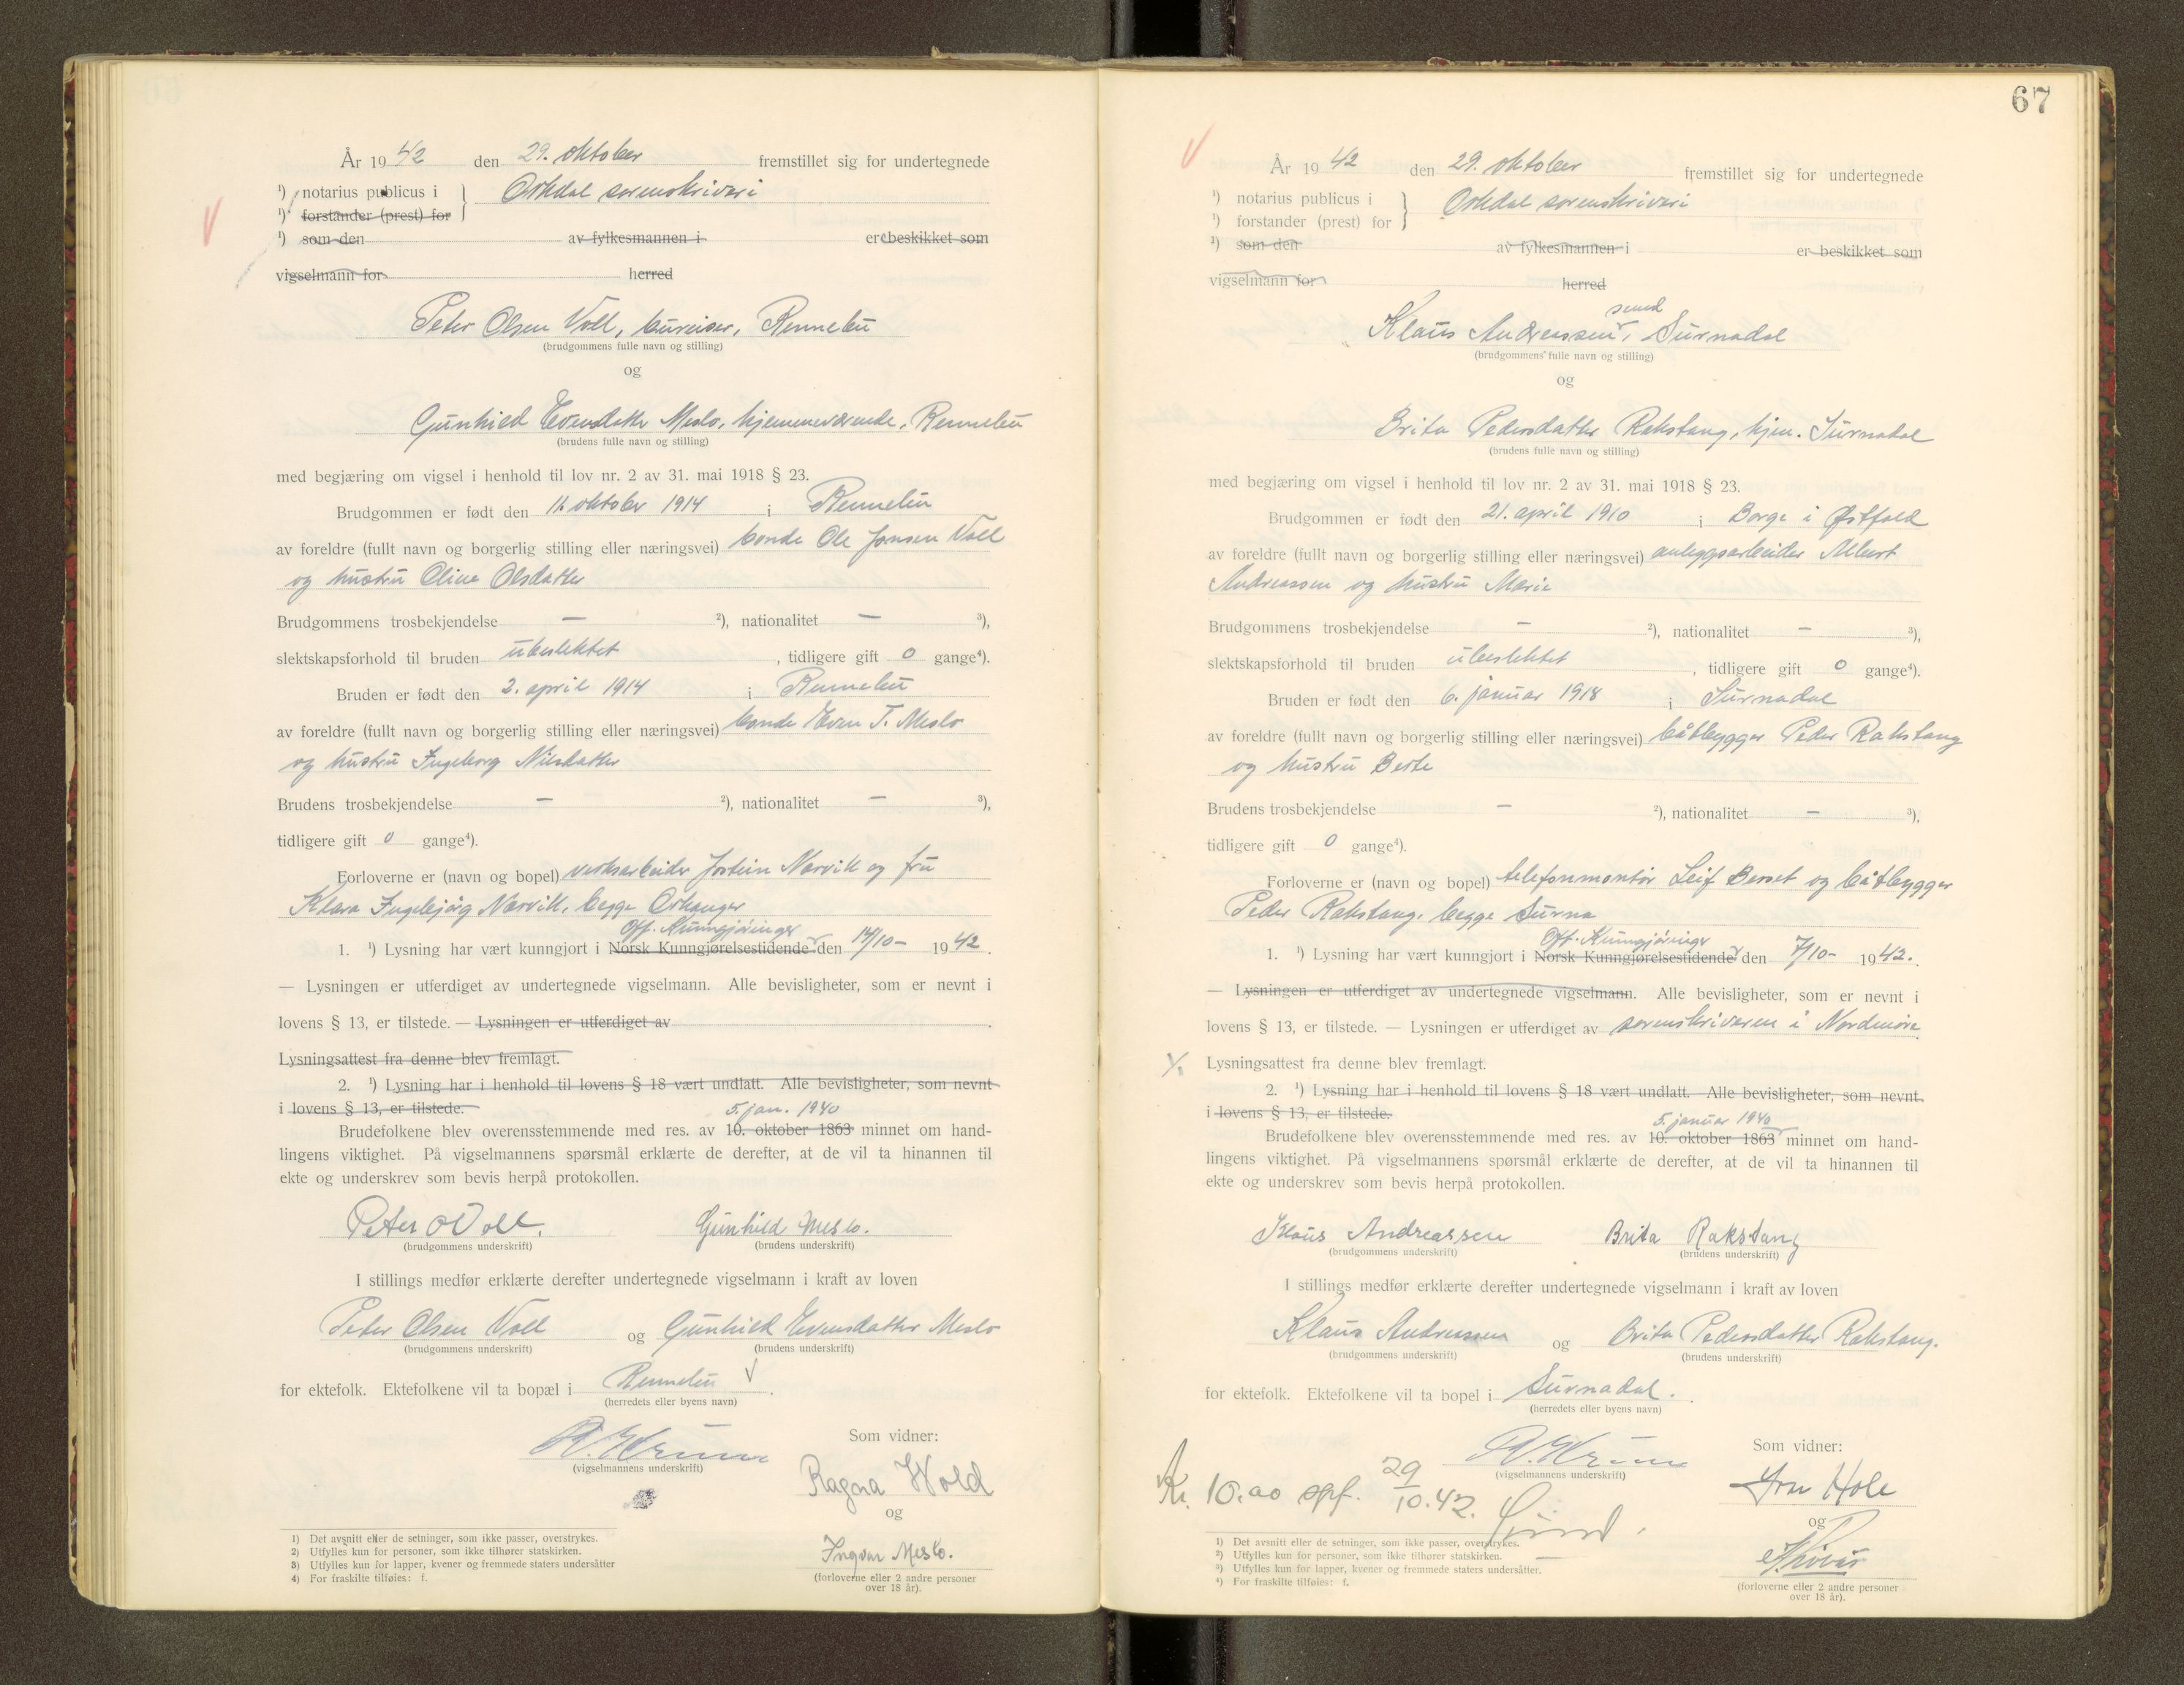 År 1942 den 29. oktober fremstillet sig for undertegnede
¹) notarius publicus i } Orkdal sorenskriveri
¹) forstander (prest) for
¹) som den av fylkesmannen i er beskikket som
vigselmann for herred
Peter Olsen Voll, bureiser, Rennebu
(brudgommens fulle navn og stilling)
og
Gunhild Evensdatter Meslo, hjemmeværende, Rennebu
(brudens fulle navn og stilling)
med begjæring om vigsel i henhold til lov nr. 2 av 31. mai 1918 § 23.
Brudgommen er født den oktober 1914 i Rennebu
av foreldre (fullt navn og borgerlig stilling eller næringsvei) bonde Ole Jonsen Voll
og hustru Oline Olsdatter
Brudgommens trosbekjendelse — ²), nationalitet — ³),
slektskapsforhold til bruden ubeslektet , tidligere gift 0 gange⁴).
Bruden er født den 2. april 1914 i Rennebu
av foreldre (fullt navn og borgerlig stilling eller næringsvei) bonde Even T. Meslo
og hustru Ingeborg Nilsdatter
Brudens trosbekjendelse — ²), nationalitet — ³),
tidligere gift 0 gange⁴).
Forloverne er (navn og bopel) verksarbeider Jostein Narvik og fru
Klara Ingebjørg Narvik, begge Orkanger
Off. Kunngjøringer
1. ¹) Lysning har vært kunngjort i Norsk Kunngjørelsestidende den 14/10- 1942.
— Lysningen er utferdiget av undertegnede vigselmann. Alle bevisligheter, som er nevnt i
lovens § 13, er tilstede. — Lysningen er utferdiget av
Lysningsattest fra denne blev fremlagt.
2. ¹) Lysning har i henhold til lovens § 18 vært undlatt. Alle bevisligheter, som nevnt
i lovens § 13, er tilstede.
5. jan. 1940
Brudefolkene blev overensstemmende med res. av 10. oktober 1863 minnet om hand-
lingens viktighet. På vigselmannens spørsmål erklærte de derefter, at de vil ta hinannen til
ekte og underskrev som bevis herpå protokollen.
Peter O Voll. Gunhild Meslo.
(brudgommens underskrift) (brudens underskrift)
I stillings medfør erklærte derefter undertegnede vigselmann i kraft av loven
Peter Olsen Voll og Gunhild Evensdatter Meslo
(brudgommens underskrift) (brudens underskrift)
for ektefolk. Ektefolkene vil ta bopæl i Rennebu
(herredets eller byens navn)
(vigselmannens underskrift)
Som vidner:
Ragna Wold
og
Ingvar Meslo.
(forloverne eller 2 andre personer
over 18 år).
1) Det avsnitt eller de setninger, som ikke passer, overstrykes.
2) Utfylles kun for personer, som ikke tilhører statskirken.
3) Utfylles kun for lapper, kvener og fremmede staters undersåtter
4) For fraskilte tilføies: f.
67
År 1942 den 29. oktober fremstillet sig for undertegnede
¹) notarius publicus i } Orkdal sorenskriveri
¹) forstander (prest) for
¹) som den av fylkesmannen i er beskikket som
vigselmann for herred
smed
Klaus Andreassen, Surnadal
(brudgommens fulle navn og stilling)
og
Brita Pedersdatter Rakstang, hjem. Surnadal
(brudens fulle navn og stilling)
med begjæring om vigsel i henhold til lov nr. 2 av 31. mai 1918 § 23.
Brudgommen er født den 21. april 1910 i Borge i Østfold
av foreldre (fullt navn og borgerlig stilling eller næringsvei) anleggsarbeider Albert
Andreassen og hustru Marie
Brudgommens trosbekjendelse — ²), nationalitet — ³),
slektskapsforhold til bruden ubeslektet , tidligere gift 0 gange⁴).
Bruden er født den 6. januar 1918 i Surnadal
av foreldre (fullt navn og borgerlig stilling eller næringsvei) båtbygger Peder Rakstang
og hustru Berte
Brudens trosbekjendelse — ²), nationalitet — ³),
tidligere gift 0 gange⁴).
Forloverne er (navn og bopel) telefonmontør Leif Berset og båtbygger
Peder Rakstang, begge Surna
Off. Kunngjøringer
1. ¹) Lysning har vært kunngjort i Norsk Kunngjørelsestidende den 7/10- 1942.
— Lysningen er utferdiget av undertegnede vigselmann. Alle bevisligheter, som er nevnt i
lovens § 13, er tilstede. — Lysningen er utferdiget av sorenskriveren i Nordmøre
Lysningsattest fra denne blev fremlagt.
2. ¹) Lysning har i henhold til lovens § 18 vært undlatt. Alle bevisligheter, som nevnt
i lovens § 13, er tilstede.
5. januar 1940
Brudefolkene blev overensstemmende med res. av 10. oktober 1863 minnet om hand-
lingens viktighet. På vigselmannens spørsmål erklærte de derefter, at de vil ta hinannen til
ekte og underskrev som bevis herpå protokollen.
Klaus Andreassen Brita Rakstang
(brudgommens underskrift) (brudens underskrift)
I stillings medfør erklærte derefter undertegnede vigselmann i kraft av loven
Klaus Andreassen og Brita Pedersdatter Rakstang.
(brudgommens underskrift) (brudens underskrift)
for ektefolk. Ektefolkene vil ta bopel i Surnadal.
(herredets eller byens navn)
(vigselmannens underskrift)
Kr. 10.00 opf. 29/10.42.
Som vidner:
Hole
og
(forloverne eller 2 andre personer
over 18 år).
1) Det avsnitt eller de setninger, som ikke passer, overstrykes.
2) Utfylles kun for personer, som ikke tilhører statskirken.
3) Utfylles kun for lapper, kvener og fremmede staters undersåtter.
4) For fraskilte tilføies: f.